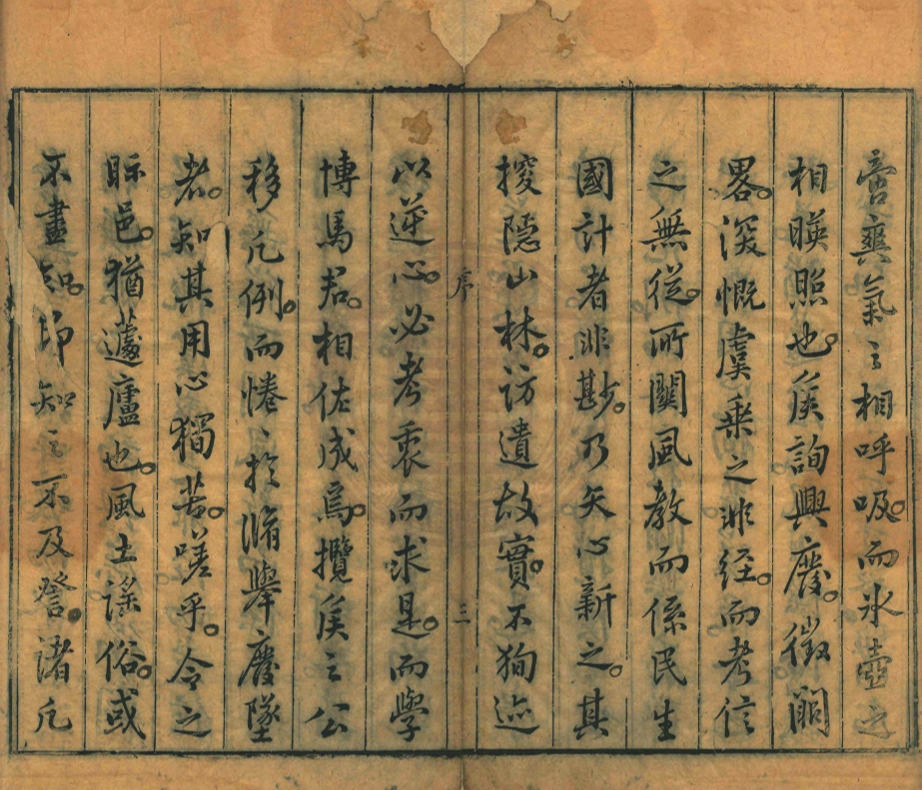 啻爽氣之相呼吸。而氷壺之
相暎照也。矦詢興廢。徵闊
畧。深慨虞乗之非經。而考信
之無從。所關風教而係民生
國計者非尠。乃矢心新之。其
搜隱山林。訪遺故實。不狥迹
序 三
以逆心。必考衷而求是。而學
博馬君。相佐成焉。攬矦之公
移凡例。而惓〻於脩舉廢墜
者。知其用心獨苦。嗟乎。令之
眎邑。猶蘧廬也。風土謡俗。或
不盡知。即知之不及詧。諸凡